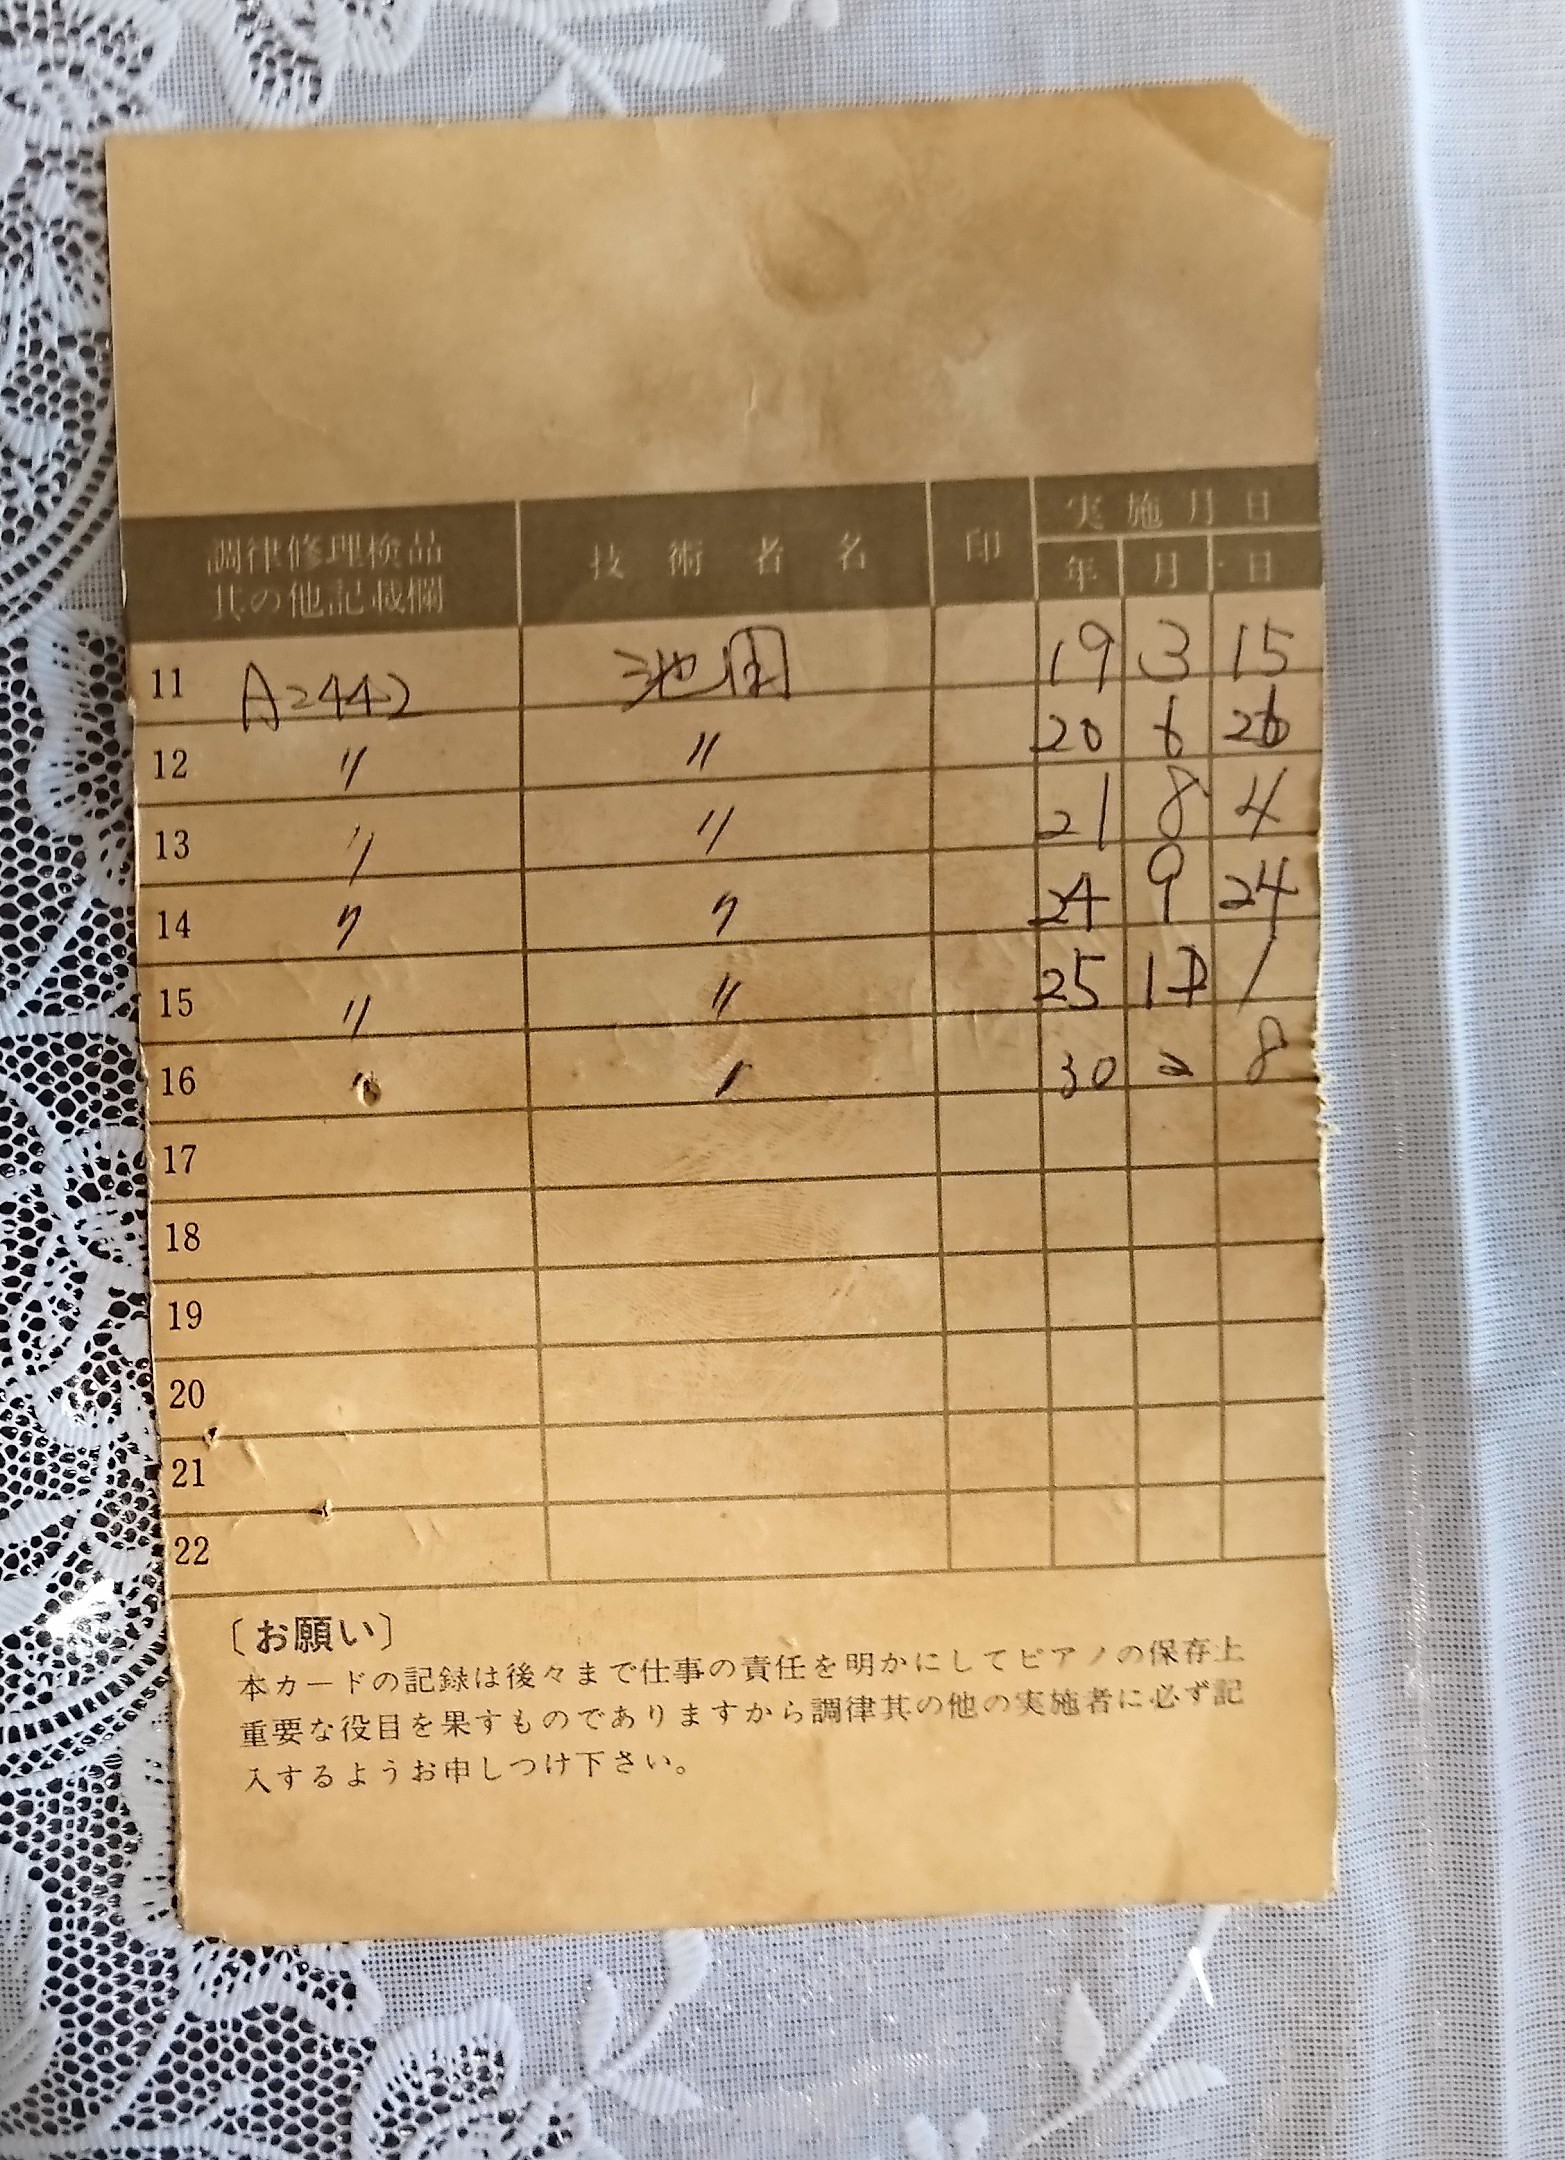 調律修理検品
其の他記載欄
技術者名
印
実施月日
年 月 日
11 A=442 池田 19 3 15
12 〃 〃 20 6 26
13 〃 〃 21 8 4
14 〃 〃 24 9 24
15 〃 〃 25 1
16 〃 〃 30 2 8
17
18
19
20
21
22
〔お願い〕
本カードの記録は後々まで仕事の責任を明かにしてピアノの保存上
重要な役目を果すものでありますから調律其の他の実施者に必ず記
入するようお申しつけ下さい。